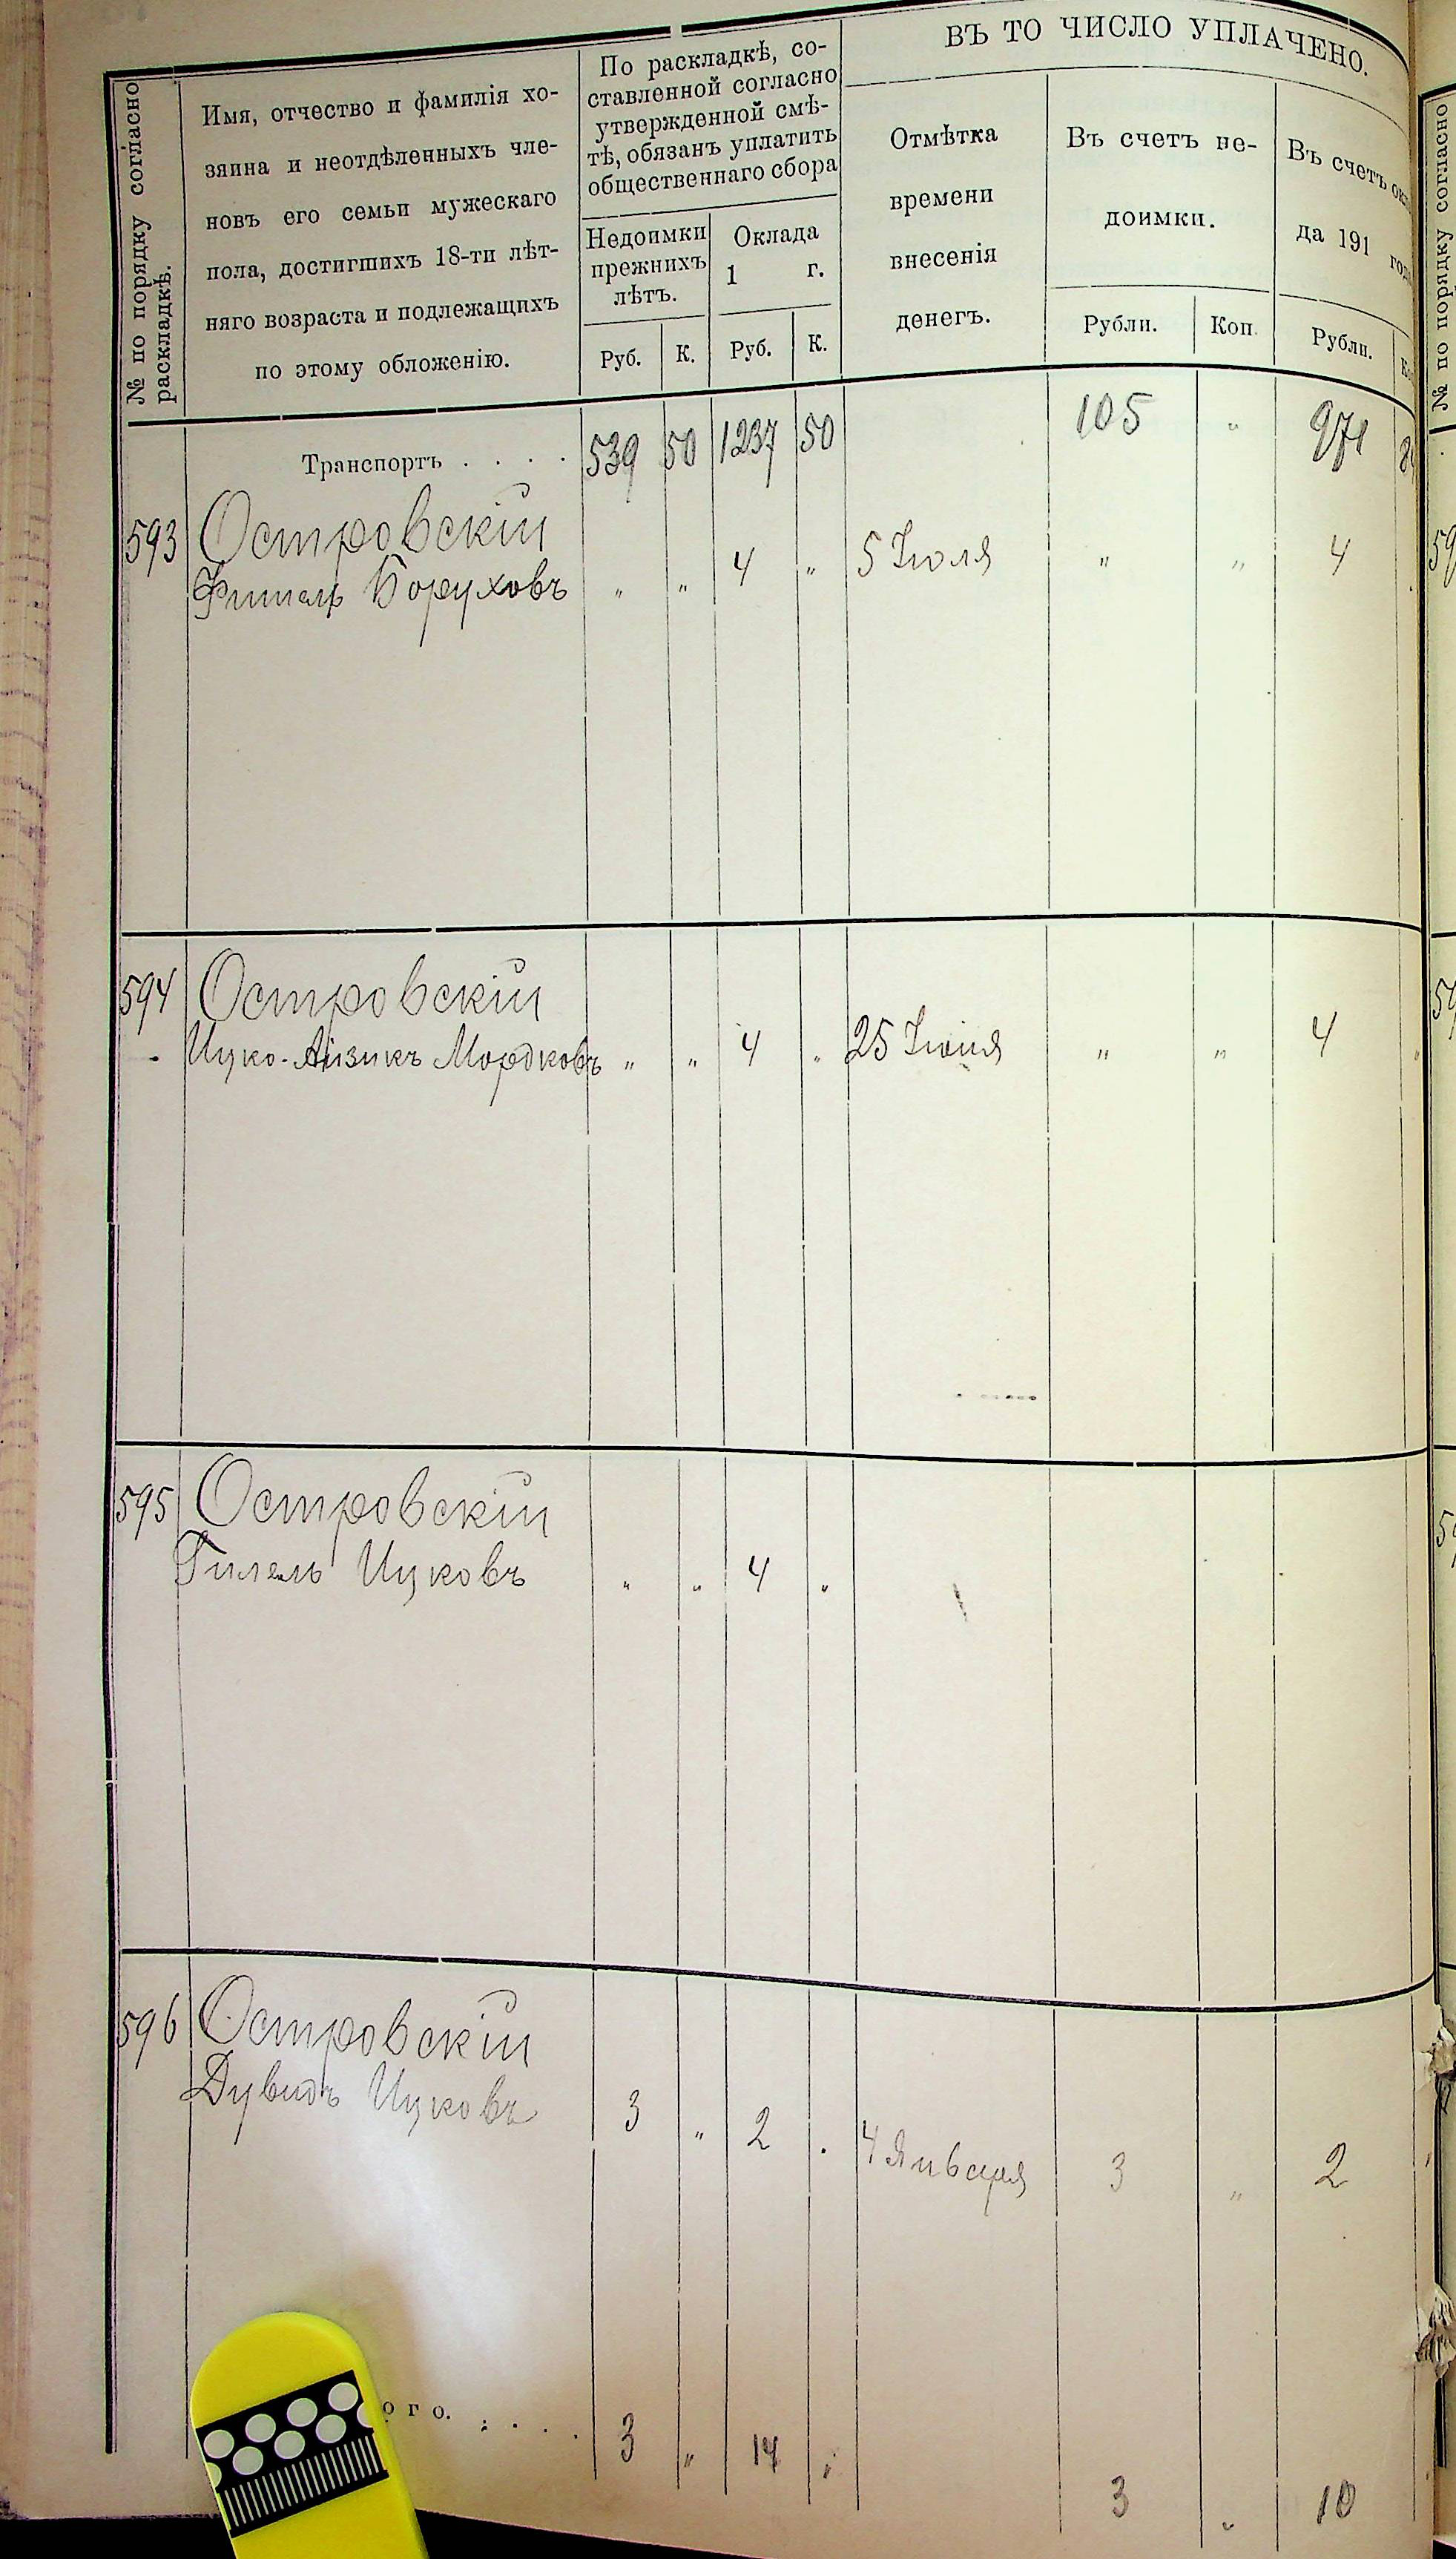 ВЪ ТО ЧИСЛО УПЛАЧЕНО.
№ по порядку согласно
раскладкѣ.
Имя, отчество и фамилія хо-
зяина и неотдѣленныхъ чле-
новъ его семьи мужескаго
пола, достигшихъ 18-ти лѣт-
няго возраста и подлежащихъ
по этому обложенію.
По раскладкѣ, со-
ставленной согласно
утвержденной смѣ-
тѣ, обязанъ уплатить
общественнаго сбора
Недоимки
прежнихъ
лѣтъ.
Оклада
1 г.
Руб. К. Руб. К.
Отмѣтка
времени
внесенія
денегъ.
Въ счетъ не-
доимки.
Рубли. Коп.
Въ счетъ
да 191
Рубли.
№ по порядку согласно
Транспортъ . . . . 539 50 1237 50 105 "
593 Островскій
Фишель Боруховъ " " 4 " 5 Іюля " " 4
594 Островскій
Ицко-Айзикъ Мордковъ " " 4 " 25 Іюня " " 4
595 Островскій
Гилель Ицковъ " " 4 "
596 Островскій
Дувидъ Ицковъ 3 " 2 . 4 Января 3 " 2
ого. . . . . 3 " 14 " 3 " 10